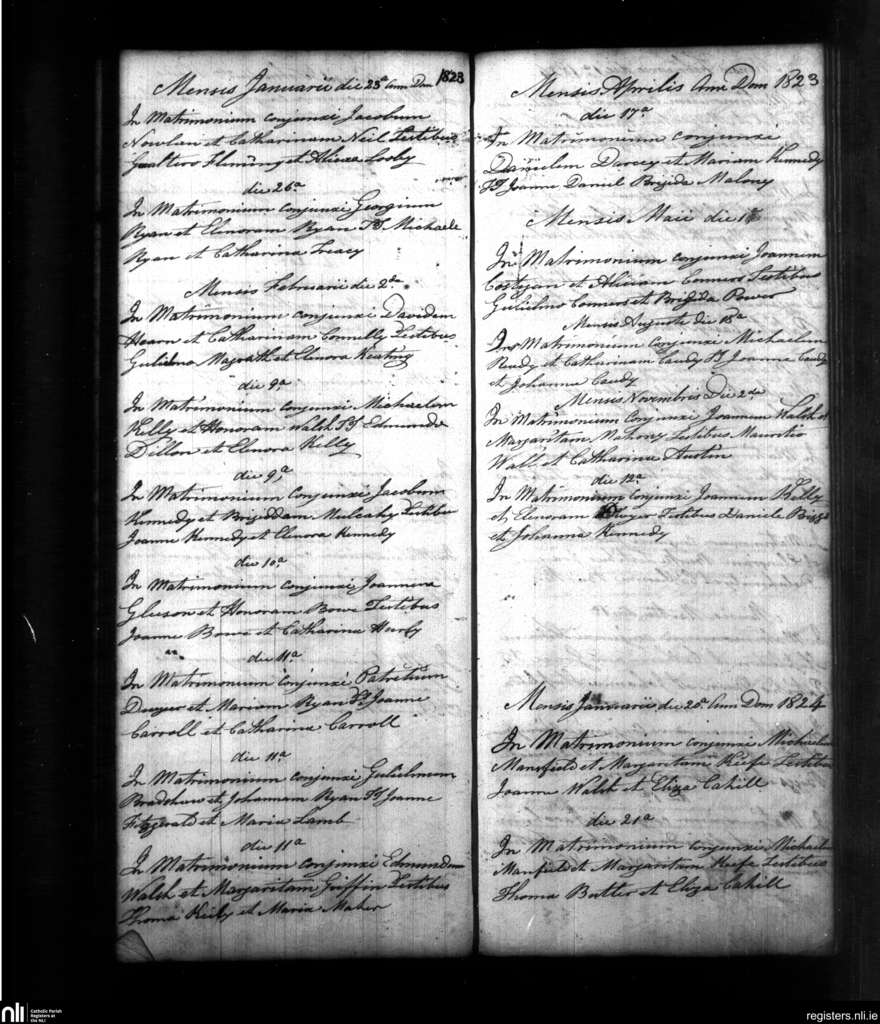 Mensis Januarii die 25ª Ann Dom 1823
In Matrimonium conjunxi Jacobum
Nowlan et Catharinam Neil Testibus
Gualtero Fleming et Alicia Looby
die 26ª
In Matrimonium conjunxi Georgium
Ryan et Elenoram Ryan Tˢ Michaele
Ryan et Catharina Treacy
Mensis Februarii die 2da
In Matrimonium conjunxi Davidem
Hearn et Catharinam Connelly Testibus
Gulielmo Magrath et Elenora Keating
die 9ª
In Matrimonium conjunxi Michaelem
Kelly et Honoram Walsh Tˢ Edmundo
Dillon et Elenora Kelly
die 9ª
In Matrimonium conjunxi Jacobum
Kennedy et Brigiddam Mulcahy Testibus
Joanne Kennedy et Elenora Kennedy
die 10ª
In Matrimonium conjunxi Joannem
Gleeson et Honoram Bowe Testibus
Joanne Bowe et Catharina
die 11ª
In Matrimonium conjunxi Patritium
Dwyer et Mariam Ryan Tˢ Joanne
Carroll et Catharina Carroll
die 11ª
In Matrimonium conjunxi Gulielmum
Bradshaw et Johannam Ryan Tˢ Joanne
Fitzgerald et Maria Lamb
die 11ª
In Matrimonium conjunxi Edmundum
Walsh et Margaritam Griffin Testibus
Thoma Kiely et Maria Maher
Mensis Aprilis Ann Dom 1823
die 17ª
In Matrimonium conjunxi
Danielem Darcey et Mariam Kennedy
Tˢ Joanne Daniel Brigida Malony
Mensis Maii die 1ª
In Matrimonium conjunxi Joannem
Costigan et Aliciam Connors Testibus
Gulielmo Connors et Brigida Power
Mensis Augusti die 18ª
In Matrimonium conjunxi Michaelem
Ready et Catharinam Caudy Tˢ Joanne Caudy
et Johanna Caudy
Mensis Novembris Die 2da
In Matrimonium conjunxi Joannem Walsh et
Margaritam Mahony Testibus Mauritio
Wall et Catharina Austin
die 12ª
In Matrimonium conjunxi Joannem Kelly
et Elenoram Dwyer Testibus Daniele Biggs
et Johanna Kennedy
Mensis Januarii die 20ª Ann Dom 1824
In Matrimonium conjunxi Michaelem
Mansfield et Margaritam Keefe Testibus
Joanne Walsh et Eliza Cahill
die 21ª
In Matrimonium conjunxi Michaelem
Manfield et Margaritam Keefe Testibus
Thoma Butler et Eliza Cahill
nli Catholic Parish
Registers at
the NLI
registers.nli.ie